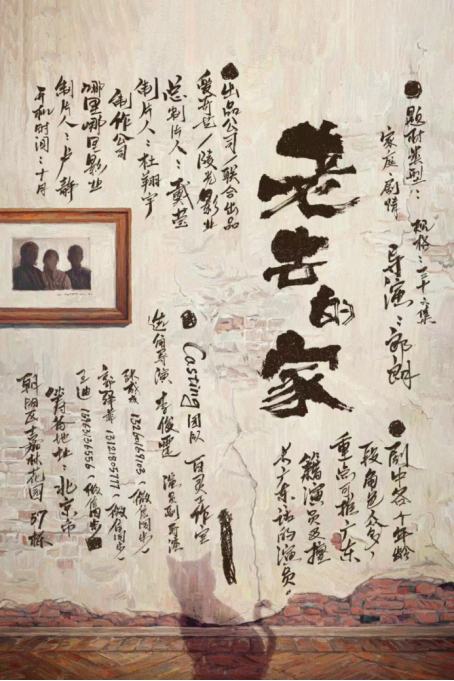 老去的家
题材类型：
家庭、剧情
规格：三十六集
导演：郎朗
出品公司/联合出品
爱奇艺/陵光影业
总制片人：戴莹
制片人：杜翔宇
制作公司
哪里哪里影业
制片人：卢静
开机时间：十月
剧中各个年龄
段角色众多，
重点可推广东
籍演员及擅
长广东话的演员。
Casting团队
百灵工作室
选角导演 李俊霆
演员副导演
王迪
（微信同步）
（微信同步）
（微信同步）
北京市
朝阳区
花园 37栋